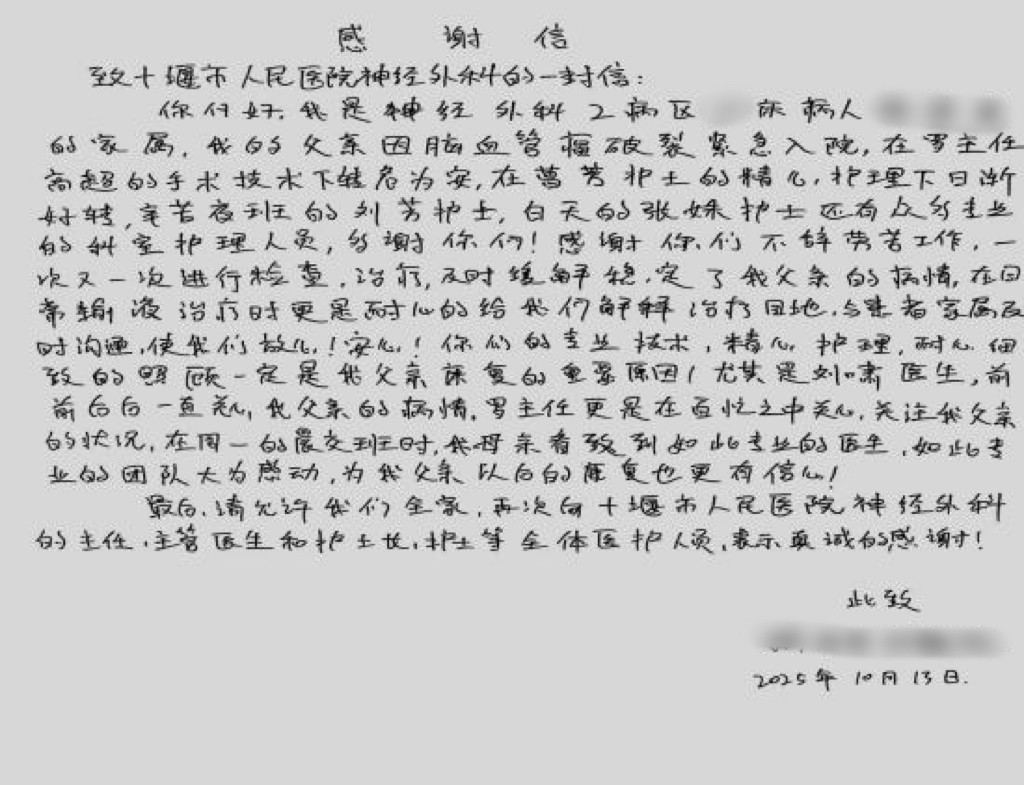 感谢信
致十堰市人民医院神经外科的一封信:
你们好,我是神经外科2病区 床病人
的家属,我的父亲因脑血管瘤破裂紧急入院,在罗主任
高超的手术技术下转危为安,在葛芳护士的精心护理下日渐
好转,辛苦夜班的刘芳护士,白天的张姝护士还有众多专业
的科室护理人员,多谢你们!感谢你们不辞劳苦工作,一
次又一次进行检查,治疗,及时缓解稳定了我父亲的病情,在日
常输液治疗时更是耐心的给我们解释治疗目地,与患者家属及
时沟通,使我们放心!安心!你们的专业技术,精心护理,耐心细
致的照顾一定是我父亲康复的重要原因!尤其是刘啸医生,前
前后后一直关心我父亲的病情,罗主任更是在百忙之中关心,关注我父亲
的状况,在周一的晨交班时,我母亲看到如此专业的医生,如此专
业的团队大为感动,为我父亲以后的康复也更有信心!
最后,请允许我们全家,再次向十堰市人民医院神经外科
的主任,主管医生和护士长,护士等全体医护人员,表示真诚的感谢!
此致
2025年10月13日.